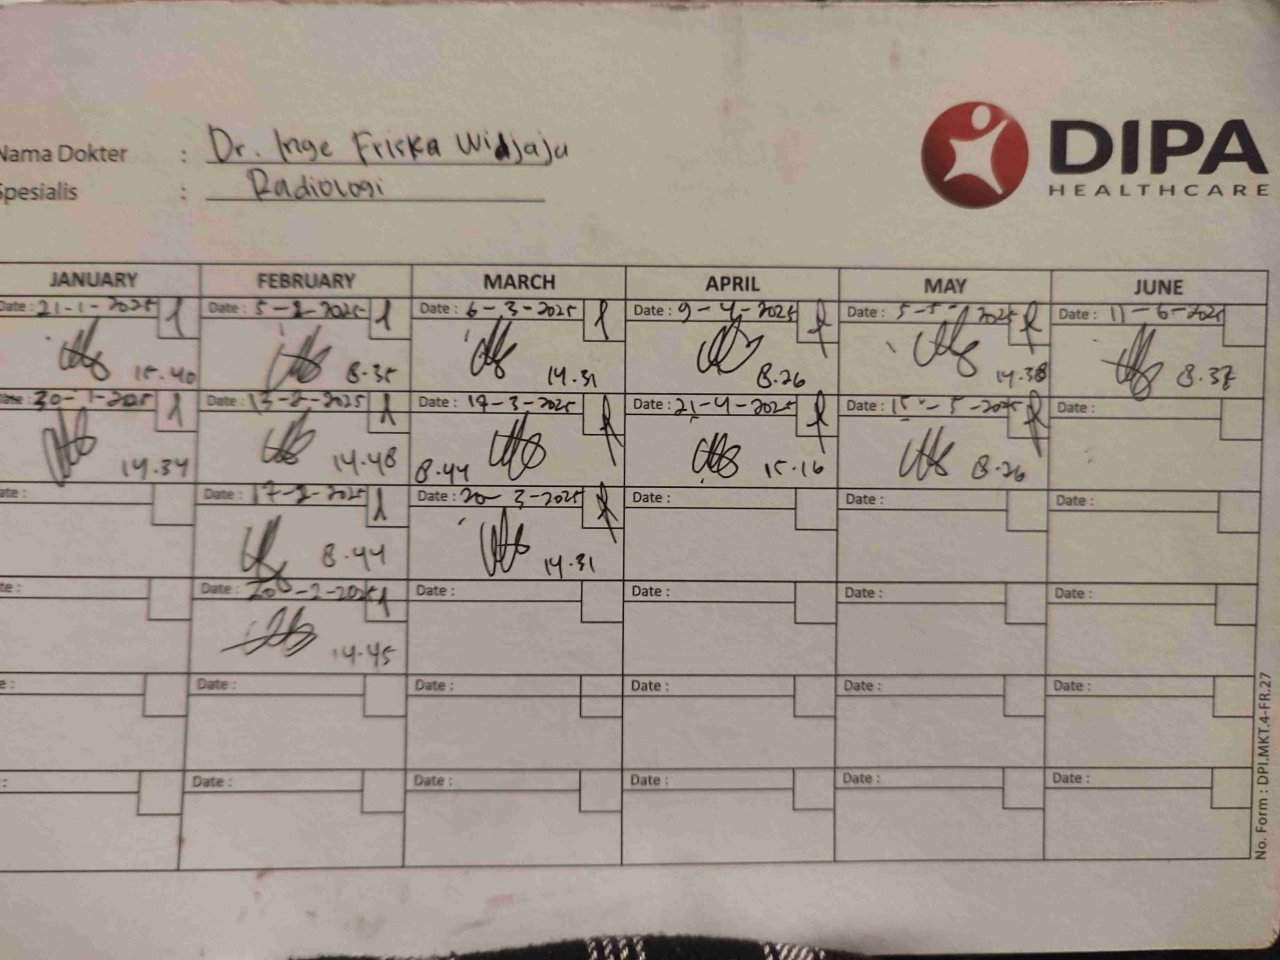 Nama Dokter : Dr. Inge Friska Widjaja
Spesialis : Radiologi
DIPA
HEALTHCARE
JANUARY FEBRUARY MARCH APRIL MAY JUNE
Date : 21-1-2025 Date : 5-2-2025 Date : 6-3-2025 Date : 9-4-2025 Date : 5-5-2025 Date : 11-6-2025
15.40 8.35 14.31 8.26 14.38 8.37
Date : 30-1-2025 Date : 13-2-2025 Date : 17-3-2025 Date : 21-4-2025 Date : 15-5-2025 Date :
14.34 14.48 8.44 15.16 8.26
Date : 17-2-2025 Date : 20-3-2025 Date : Date : Date :
8.44 14.31
Date : 20-2-2025 Date : Date : Date : Date :
14.45
Date : Date : Date : Date : Date :
Date : Date : Date : Date : Date :
No. Form : DPI.MKT.4-FR.27